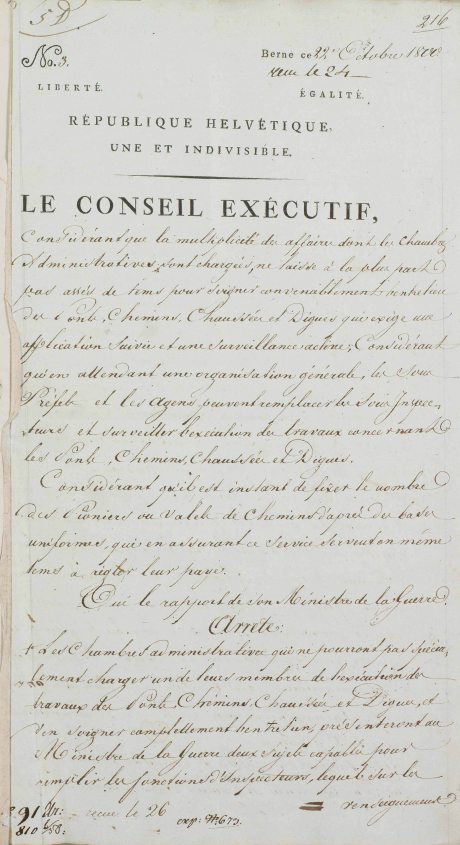 5 D.
216
No. 3.
Berne ce 22 Octobre 1800
reçu le 24
LIBERTÉ.
ÉGALITÉ.
RÉPUBLIQUE HELVÉTIQUE,
UNE ET INDIVISIBLE.
LE CONSEIL EXÉCUTIF,
Considérant que la multiplicité des affaires dont les Chambres
Administratives sont chargés, ne laisse à la plus part
pas assés de tems pour soigner convenablement l'entretien
des Ponts, Chemins, Chaussées et Digues qui exige une
application suivie et une surveillance active; Considérant
qu'en attendant une organisation générale, les Sous
Préfets et les Agens, peuvent remplacer les Sous Inspec=
teurs et surveiller l'exécution des travaux concernant
les Ponts, Chemins, Chaussées et Digues.
Considérant qu'il est instant de fixer le nombre
des Pioniers ou Valets de Chemins d'après des bases
uniformes, qui en assurant ce service servent en même
tems à régler leur paye.
Oui le rapport de son Ministre de la Guerre.
Arrête:
1. Les Chambres administratives qui ne pourront pas spécia=
lement charger un de leurs membres de l'exécution des
travaux des Ponts, Chemins, Chaussées et Digues, et
d'en soigner complettement l'entretien, présenteront au
Ministre de la Guerre deux sujets capables pour
remplir les fonctions d'Inspecteurs, lequel sur les
renseignements
reçu le 26
810
exp: N: 673.